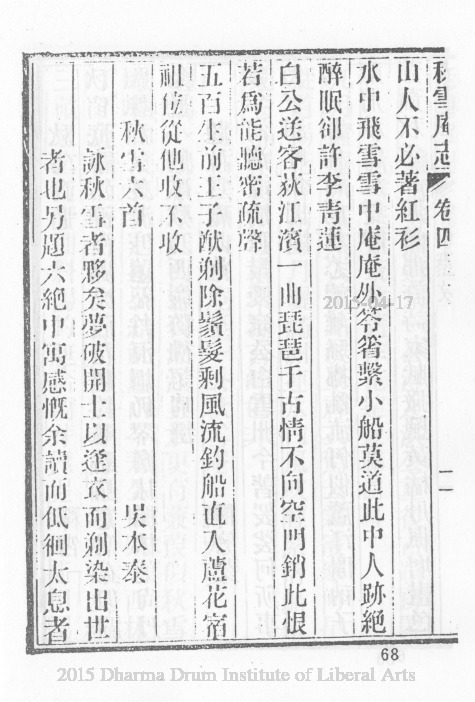 秋雪庵志 卷四 二
山人不必著紅衫
水中飛雪雪中庵庵外笭箵繫小船莫道此中人跡絕
醉眠卻許李靑蓮
白公送客荻江濱一曲琵琶千古情不向空門銷此恨
若爲能聽密疏聲
五百生前王子猷剃除鬚髮剩風流釣船直入蘆花宿
祖位從他收不收
秋雪六首 吳本泰
詠秋雪者夥矣夢破開士以逢文而剃染出世
者也另題六絕中寓感慨余讀而低徊太息者
2015-04-17
68
2015 Dharma Drum Institute of Liberal Arts